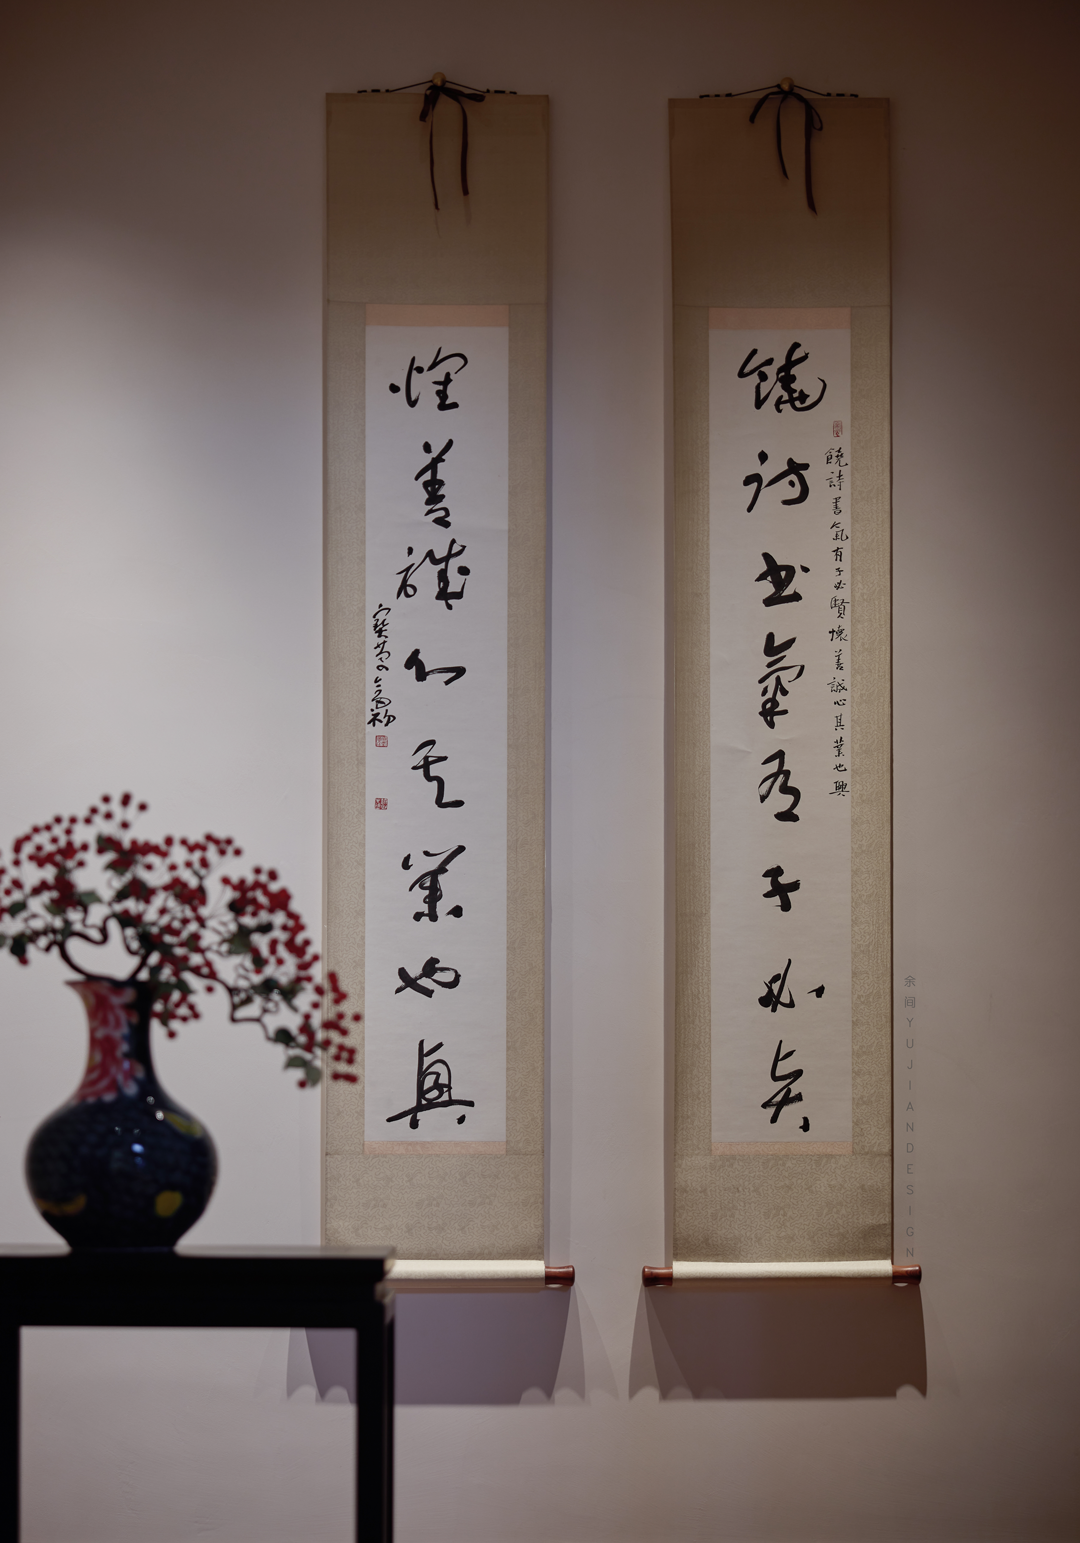 饒詩書氣有子必賢
饒詩書氣有子必賢懷善誠心其業也興
懷善誠心其業也興
余间YUJIANDESIGN